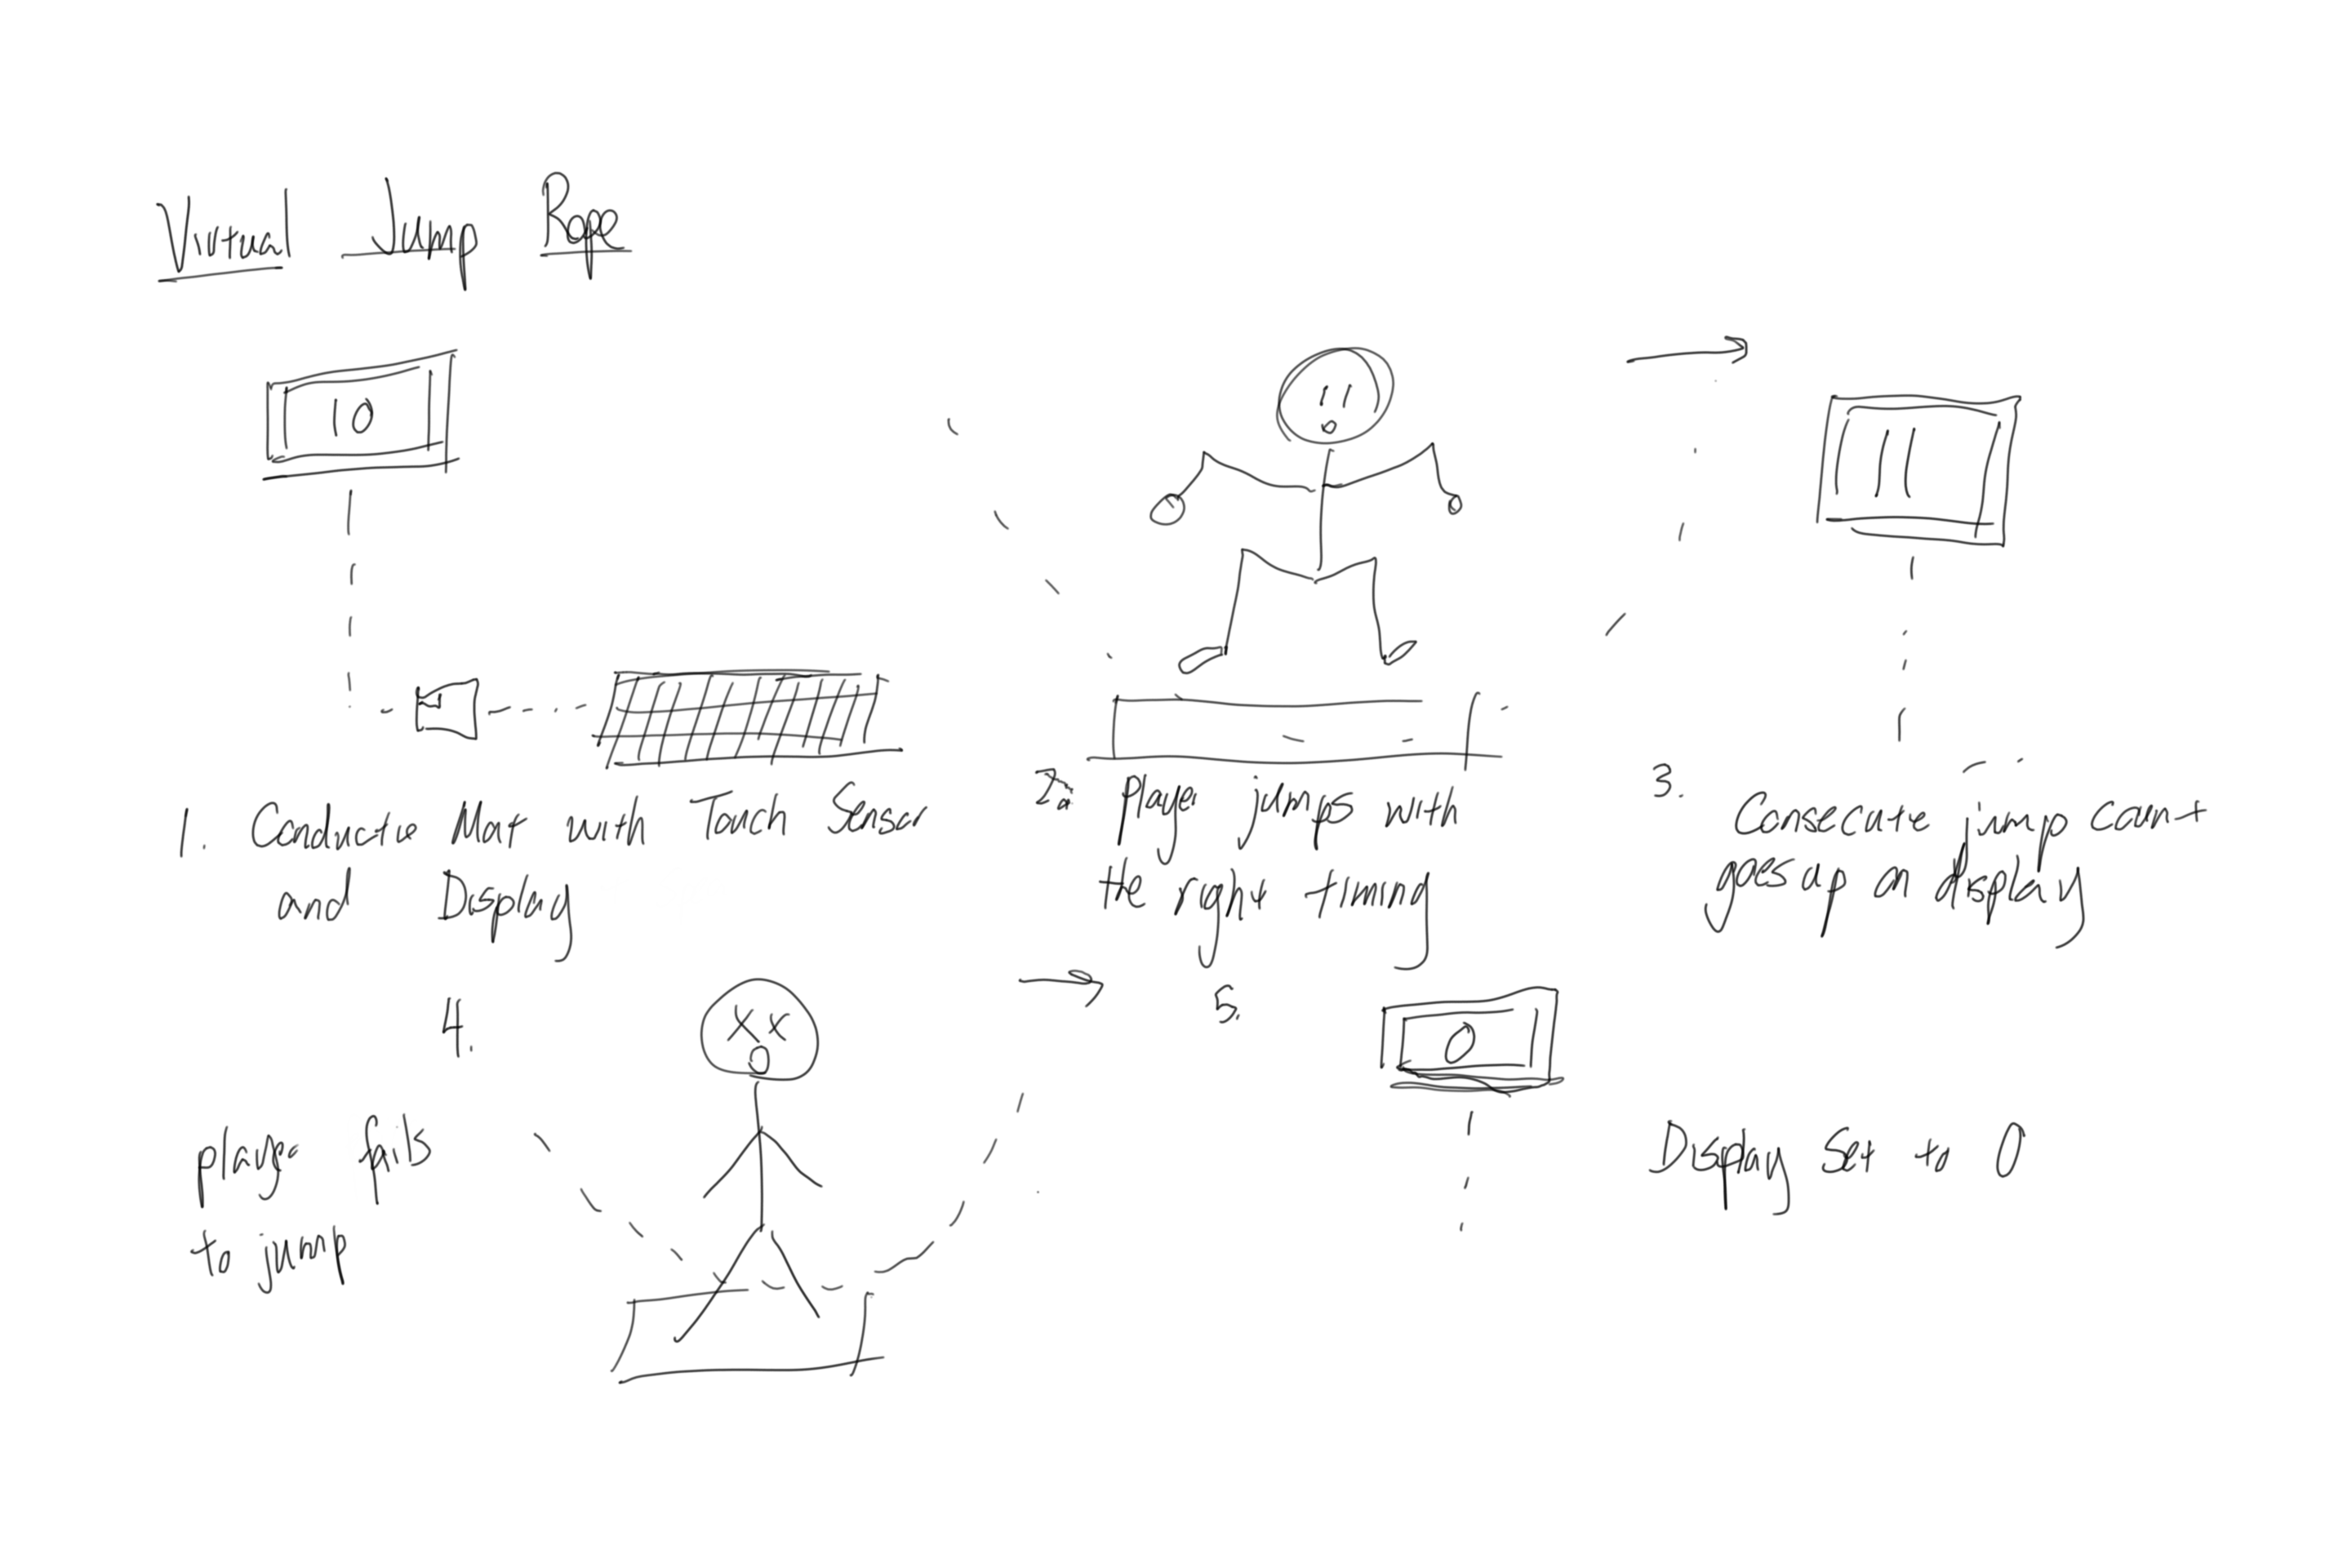 Virtual Jump Rope
10
11
1. Conductive Mat with Touch Sensor
and Display
2. Player jumps with
the right timing
3. Consecute jump count
goes up on display
4.
player fails
to jump
5.
0
Display Set to 0